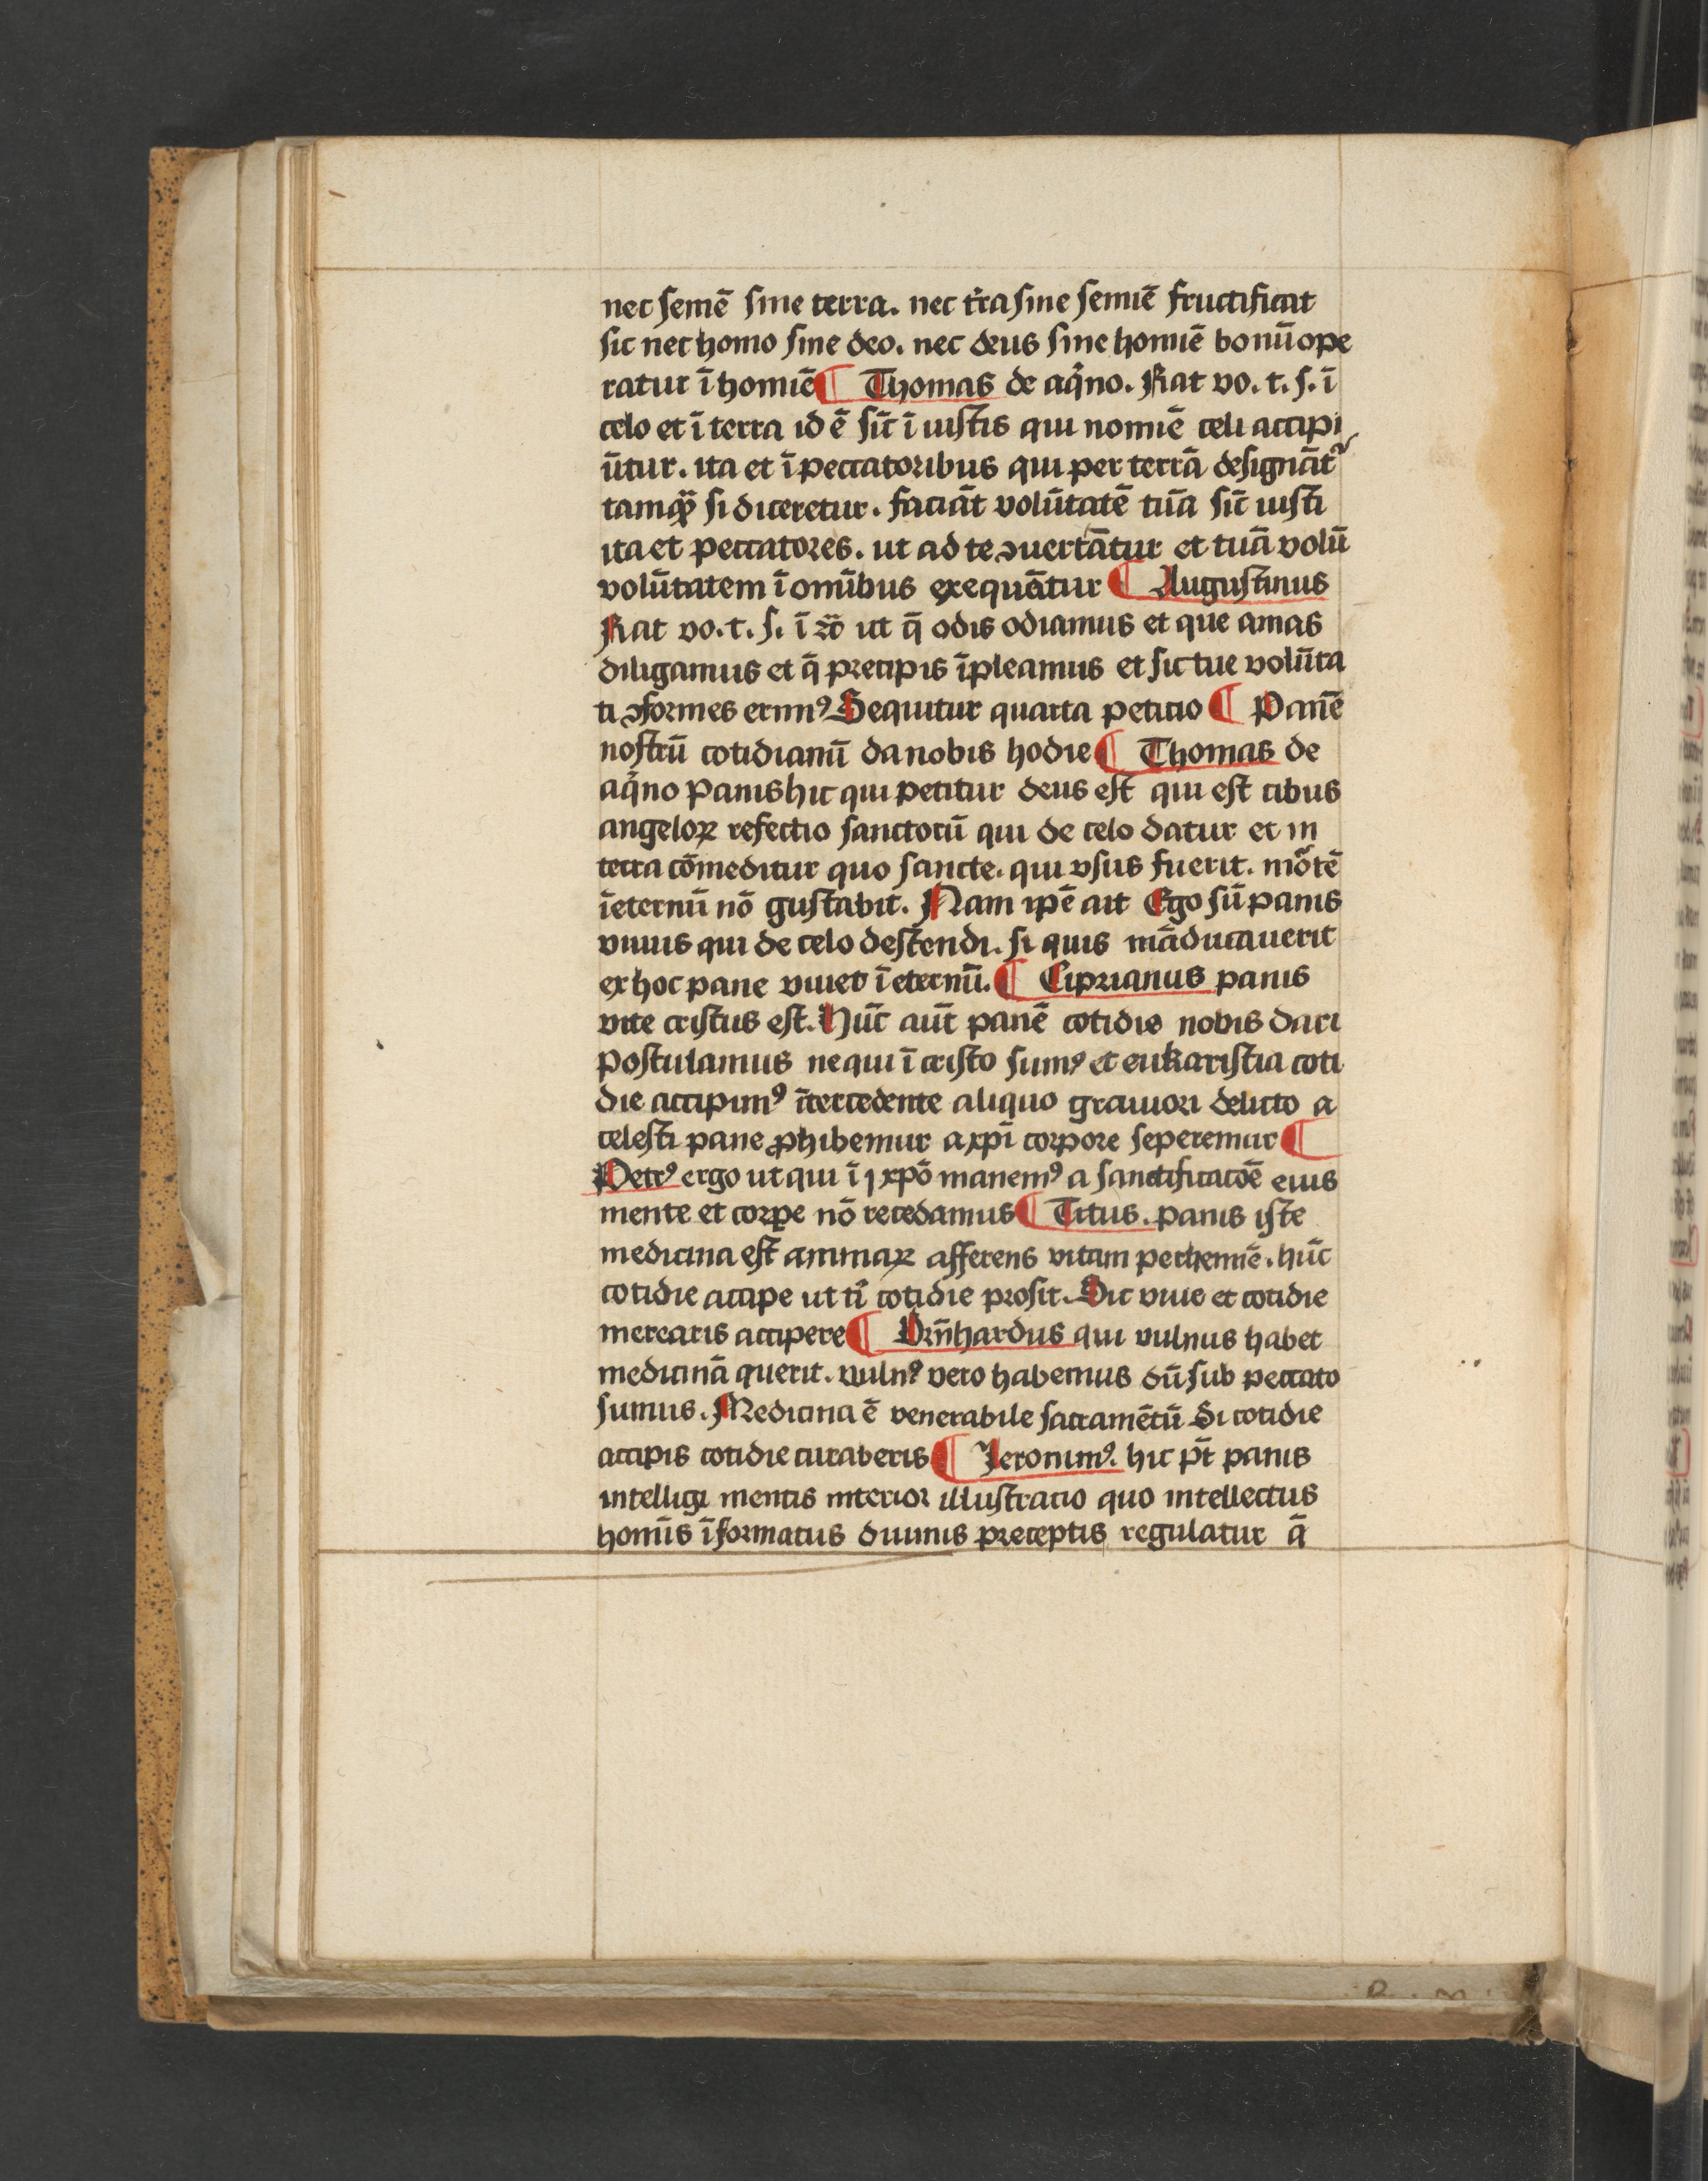 nec semē sine terra. nec t̄ra sine semiē fructificat
sic nec homo sine deo. nec deus sine homiē bonū ope
ratur ī homiē ¶ Thomas de aq̄no. Fiat vo. t. s. ī
celo et ī terra id ē sic̄ ī iustis qui nomiē celi accipi
ūtur. ita et ī peccatoribus qui per terrā designāt᷑
tamqȝ si diceretur. faciāt volūtatē tuā sic̄ iusti
ita et peccatores. ut ad te ꝯuertātur et tuā volū
volūtatem ī omībus exequātur ¶ Augustinus
Fiat vo. t. s. ī ut q̄ odis odiamus et que amas
diligamus et q̄ precipis īpleamus et sic tue volūta
ti ꝯformes erimꝰ Sequitur quarta petitio ¶ Panē
nostrū cotidianū da nobis hodie ¶ Thomas de
aq̄no Panis hic qui petitur deus est qui est cibus
angeloꝝ refectio sanctorū qui de celo datur et in
terra cōmeditur quo sancte. qui vsus fuerit. mōtē
īeternū nō gustabit. Nam ip̄e ait Ego sū panis
viuus qui de celo descendi. si quis māducauerit
ex hoc pane viuet ī eternū. ¶ Ciprianus panis
vite cristus est. Hūc aūt panē cotidie nobis dari
postulamus ne qui ī cristo sumꝰ et eukaristia coti
die accipimꝰ ītercedente aliquo grauiori delicto a
celesti pane ꝓhibemur a xp̄i corpore seperemur ¶
Petrꝰ ergo ut qui ī xp̄o manemꝰ a sanctificatōe eius
mente et corꝑe nō recedamus ¶ Titus. panis iste
medicina est animaꝝ afferens vitam perhemiē. hūc
cotidie accipe ut t̄i cotidie prosit. Sic viue et cotidie
merearis accipere ¶ Brn̄hardus qui vulnus habet
medicinā querit. vulnꝰ vero habemus dū sub peccato
sumus. Medicina ē venerabile sacramētū Si cotidie
accipis cotidie curaberis ¶ Jeronimꝰ. hic pt̄ panis
intelligi mentis interior illustracio quo intellectus
homīs īformatus diuinis preceptis regulatur q̄